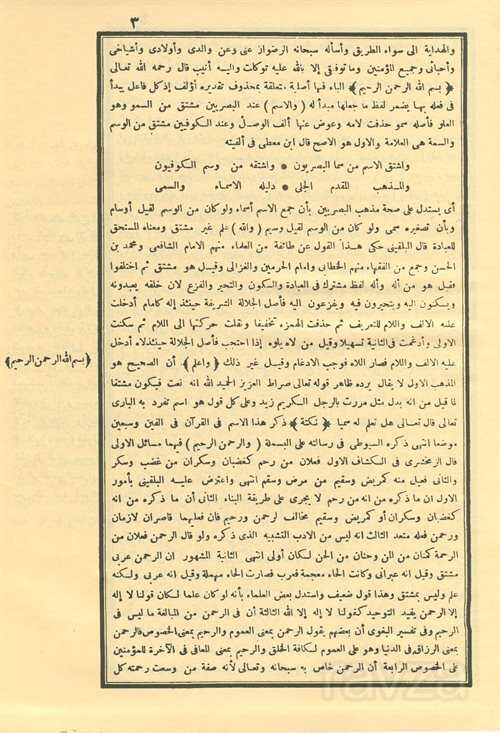 ٣
والهداية الى سواء الطريق وأسأله سبحانه الرضوان عنى وعن والدى وأولادى وأشياخى
وأحبائى وجميع المؤمنين وما توفيقى إلا بالله عليه توكلت واليه أنيب قال رحمه الله تعالى
﴿ بسم الله الرحمن الرحيم ﴾ الباء فيها أصلية متعلقة بمحذوف تقديره أؤلف إذ كل فاعل يبدأ
فى فعله بها يضمر لفظ ما جعلها مبدأ له ( والاسم ) عند البصريين مشتق من السمو وهو
العلو فأصله سمو حذفت لامه وعوض عنها ألف الوصل وعند الكوفيين مشتق من الوسم
والسمة هى العلامة والاول هو الاصح قال ابن معطى فى ألفيته
واشتق الاسم من سما البصريون • واشتقه من وسم الكوفيون
والمذهب المقدم الجلى • دليله الاسماء والسمى
أى يستدل على صحة مذهب البصريين بأن جمع الاسم أسماء ولو كان من الوسم لقيل أوسام
وبأن تصغيره سمى ولو كان من الوسم لقيل وسيم ( والله ) علم غير مشتق ومعناه المستحق
للعبادة قال البلقينى حكى هذا القول عن طائفة من العلماء منهم الامام الشافعى ومحمد بن
الحسن وجمع من الفقهاء منهم الخطابى وامام الحرمين والغزالى وقيل هو مشتق ثم اختلفوا
فقيل هو من أله وأله لفظ مشترك فى العبادة والسكون والتحير والفزع لان خلقه يعبدونه
ويسكنون اليه ويتحيرون فيه ويفزعون اليه فأصل الجلالة الشريفة حينئذ إله كامام أدخلت
عليه الالف واللام للتعريف ثم حذفت الهمزه تخفيفا ونقلت حركتها الى اللام ثم سكنت
الاولى وأدغمت فى الثانية تسهيلا وقيل من لاه يلوه إذا احتجب فأصل الجلالة حينئذ لاه أدخل
عليه الالف واللام فصار اللاه فوجب الادغام وقيل غير ذلك ﴿ واعلم ﴾ أن الصحيح هو
﴿ بسم الله الرحمن الرحيم ﴾
المذهب الاول لا يقال يرده ظاهر قوله تعالى صراط العزيز الحميد الله انه نعت فيكون مشتقا
لما قيل من انه بدل مثل مررت بالرجل الكريم زيد وعلى كل قول هو اسم تفرد به البارى
تعالى قال تعالى هل تعلم له سميا ﴿ نكتة ﴾ ذكر هذا الاسم فى القرآن فى الفين وسبعين
موضعا انتهى ذكره السيوطى فى رسالته على البسملة ( والرحمن الرحيم ) فيهما مسائل الاولى
قال الزمخشرى فى الكشاف الاول فعلان من رحم كغضبان وسكران من غضب وسكر
والثانى فعيل منه كمريض وسقيم من مرض وسقم انتهى واعترض عليه البلقينى بأمور
الاول ان ما ذكره من انه من رحم لا يجرى على طريقة البناء الثانى أن ما ذكره من انه
كغضبان وسكران أو كمريض وسقيم مخالف لرحمن ورحيم فان فعليهما قاصران لازمان
ورحمن فعله متعد الثالث انه ليس من الادب التشبيه الذى ذكره ولو قال الرحمن فعلان من
الرحمة كمنان من المن وحنان من الحن لكان أولى انتهى الثانية المشهور ان الرحمن عربى
مشتق وقيل انه عبرانى وكانت الخاء معجمة فعرب فصارت الحاء مهملة وقيل انه عربى ولكنه
علم وليس بمشتق وهذا قول ضعيف واستدل بعض العلماء بأنه لو كان علما لكان قولنا لا إله
إلا الرحمن يفيد التوحيد كقولنا لا إله إلا الله الثالثة أن فى الرحمن من المبالغة ما ليس فى
الرحيم وفى تفسير البغوى أن بعضهم يقول الرحمن بمعنى العموم والرحيم بمعنى الخصوص فالرحمن
بمعنى الرزاق فى الدنيا وهو على العموم لكافة الخلق والرحيم بمعنى المعافى فى الآخرة للمؤمنين
على الخصوص الرابعة أن الرحمن خاص به سبحانه وتعالى لأنه صفة من وسعت رحمته كل
ravza